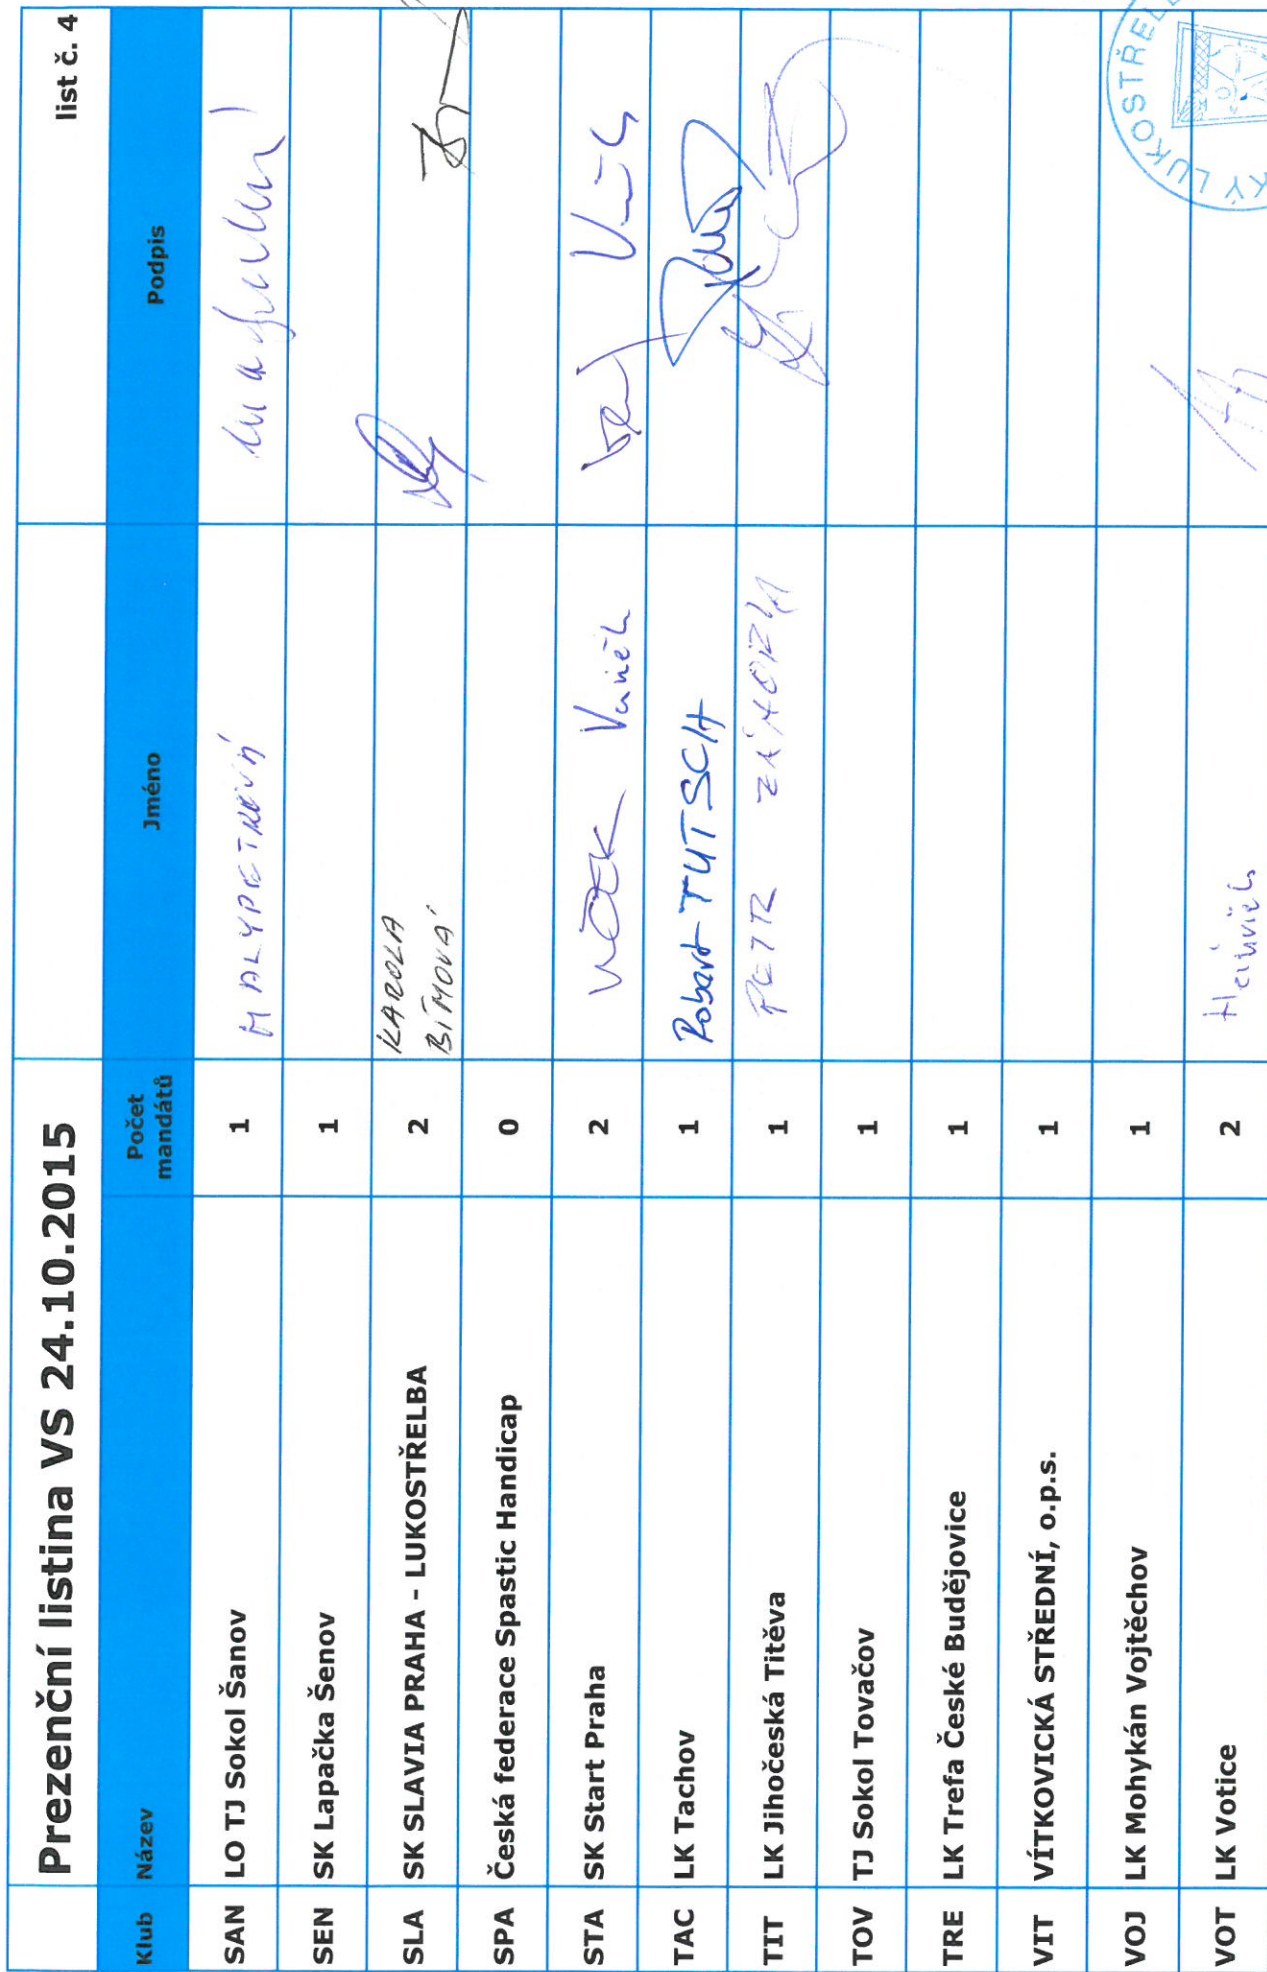 Prezenční listina VS 24.10.2015 list č. 4
Klub Název Počet mandátů Jméno Podpis
SAN LO TJ Sokol Šanov 1 MALYPETROVÁ
SEN SK Lapačka Šenov 1
SLA SK SLAVIA PRAHA - LUKOSTŘELBA 2 KAROLA
BÍMOVÁ
SPA Česká federace Spastic Handicap 0
STA SK Start Praha 2 Vaněk
TAC LK Tachov 1 Robert TUTSCH
TIT LK Jihočeská Titěva 1 PETR ZÁHORA
TOV TJ Sokol Tovačov 1
TRE LK Trefa České Budějovice 1
VIT VÍTKOVICKÁ STŘEDNÍ, o.p.s. 1
VOJ LK Mohykán Vojtěchov 1
VOT LK Votice 2
KÝ LUKOSTŘEL